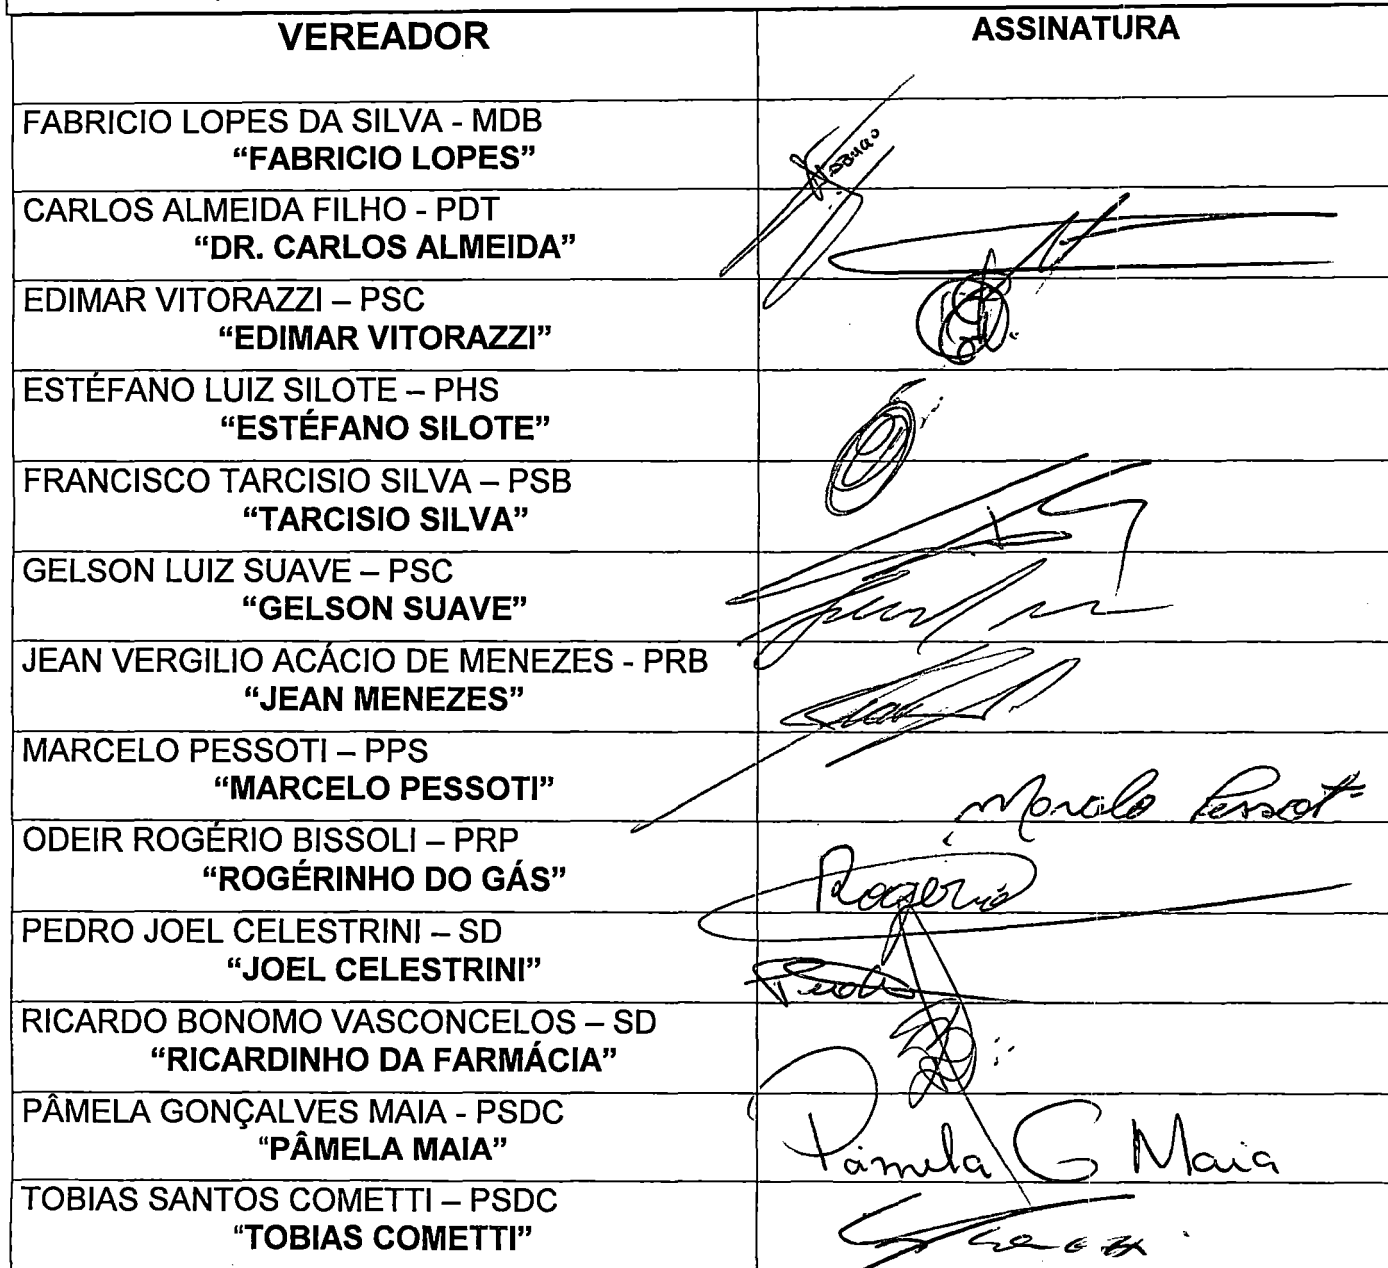 VEREADOR
ASSINATURA
FABRICIO LOPES DA SILVA - MDB
“FABRICIO LOPES”
CARLOS ALMEIDA FILHO - PDT
“DR. CARLOS ALMEIDA”
EDIMAR VITORAZZI – PSC
“EDIMAR VITORAZZI”
ESTÉFANO LUIZ SILOTE – PHS
“ESTÉFANO SILOTE”
FRANCISCO TARCISIO SILVA – PSB
“TARCISIO SILVA”
GELSON LUIZ SUAVE – PSC
“GELSON SUAVE”
JEAN VERGILIO ACÁCIO DE MENEZES - PRB
“JEAN MENEZES”
MARCELO PESSOTI – PPS
“MARCELO PESSOTI”
Marcelo Pessoti
ODEIR ROGÉRIO BISSOLI – PRP
“ROGÉRINHO DO GÁS”
Rogério
PEDRO JOEL CELESTRINI – SD
“JOEL CELESTRINI”
Pedro
RICARDO BONOMO VASCONCELOS – SD
“RICARDINHO DA FARMÁCIA”
PÂMELA GONÇALVES MAIA - PSDC
“PÂMELA MAIA”
Pâmela G Maia
TOBIAS SANTOS COMETTI – PSDC
“TOBIAS COMETTI”